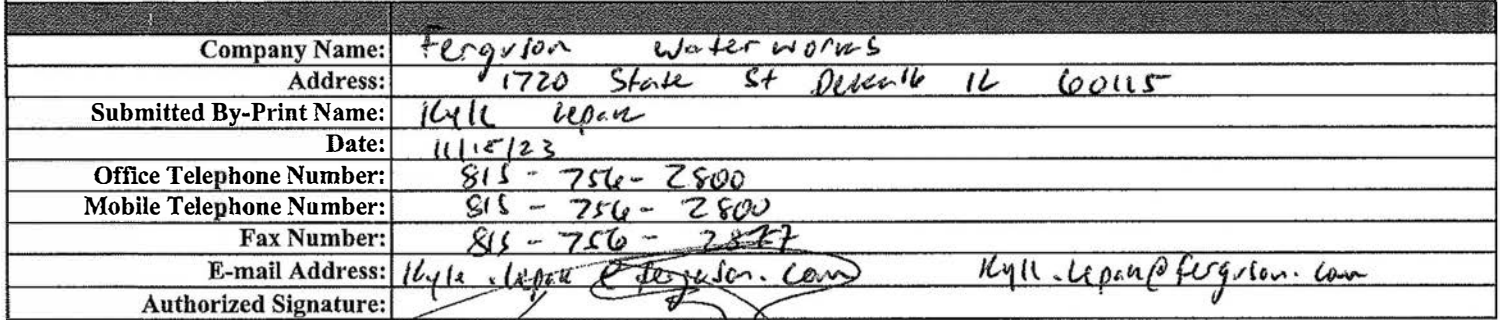 Company Name: Ferguson Waterworks
Address: 1720 State St Dekalb IL 60115
Submitted By-Print Name: Kyle Lepak
Date: 11/15/23
Office Telephone Number: 815-756-2800
Mobile Telephone Number: 815-756-2800
Fax Number: 815-756-2877
E-mail Address: Kyle.lepak@ferguson.com Kyle.lepak@ferguson.com
Authorized Signature: